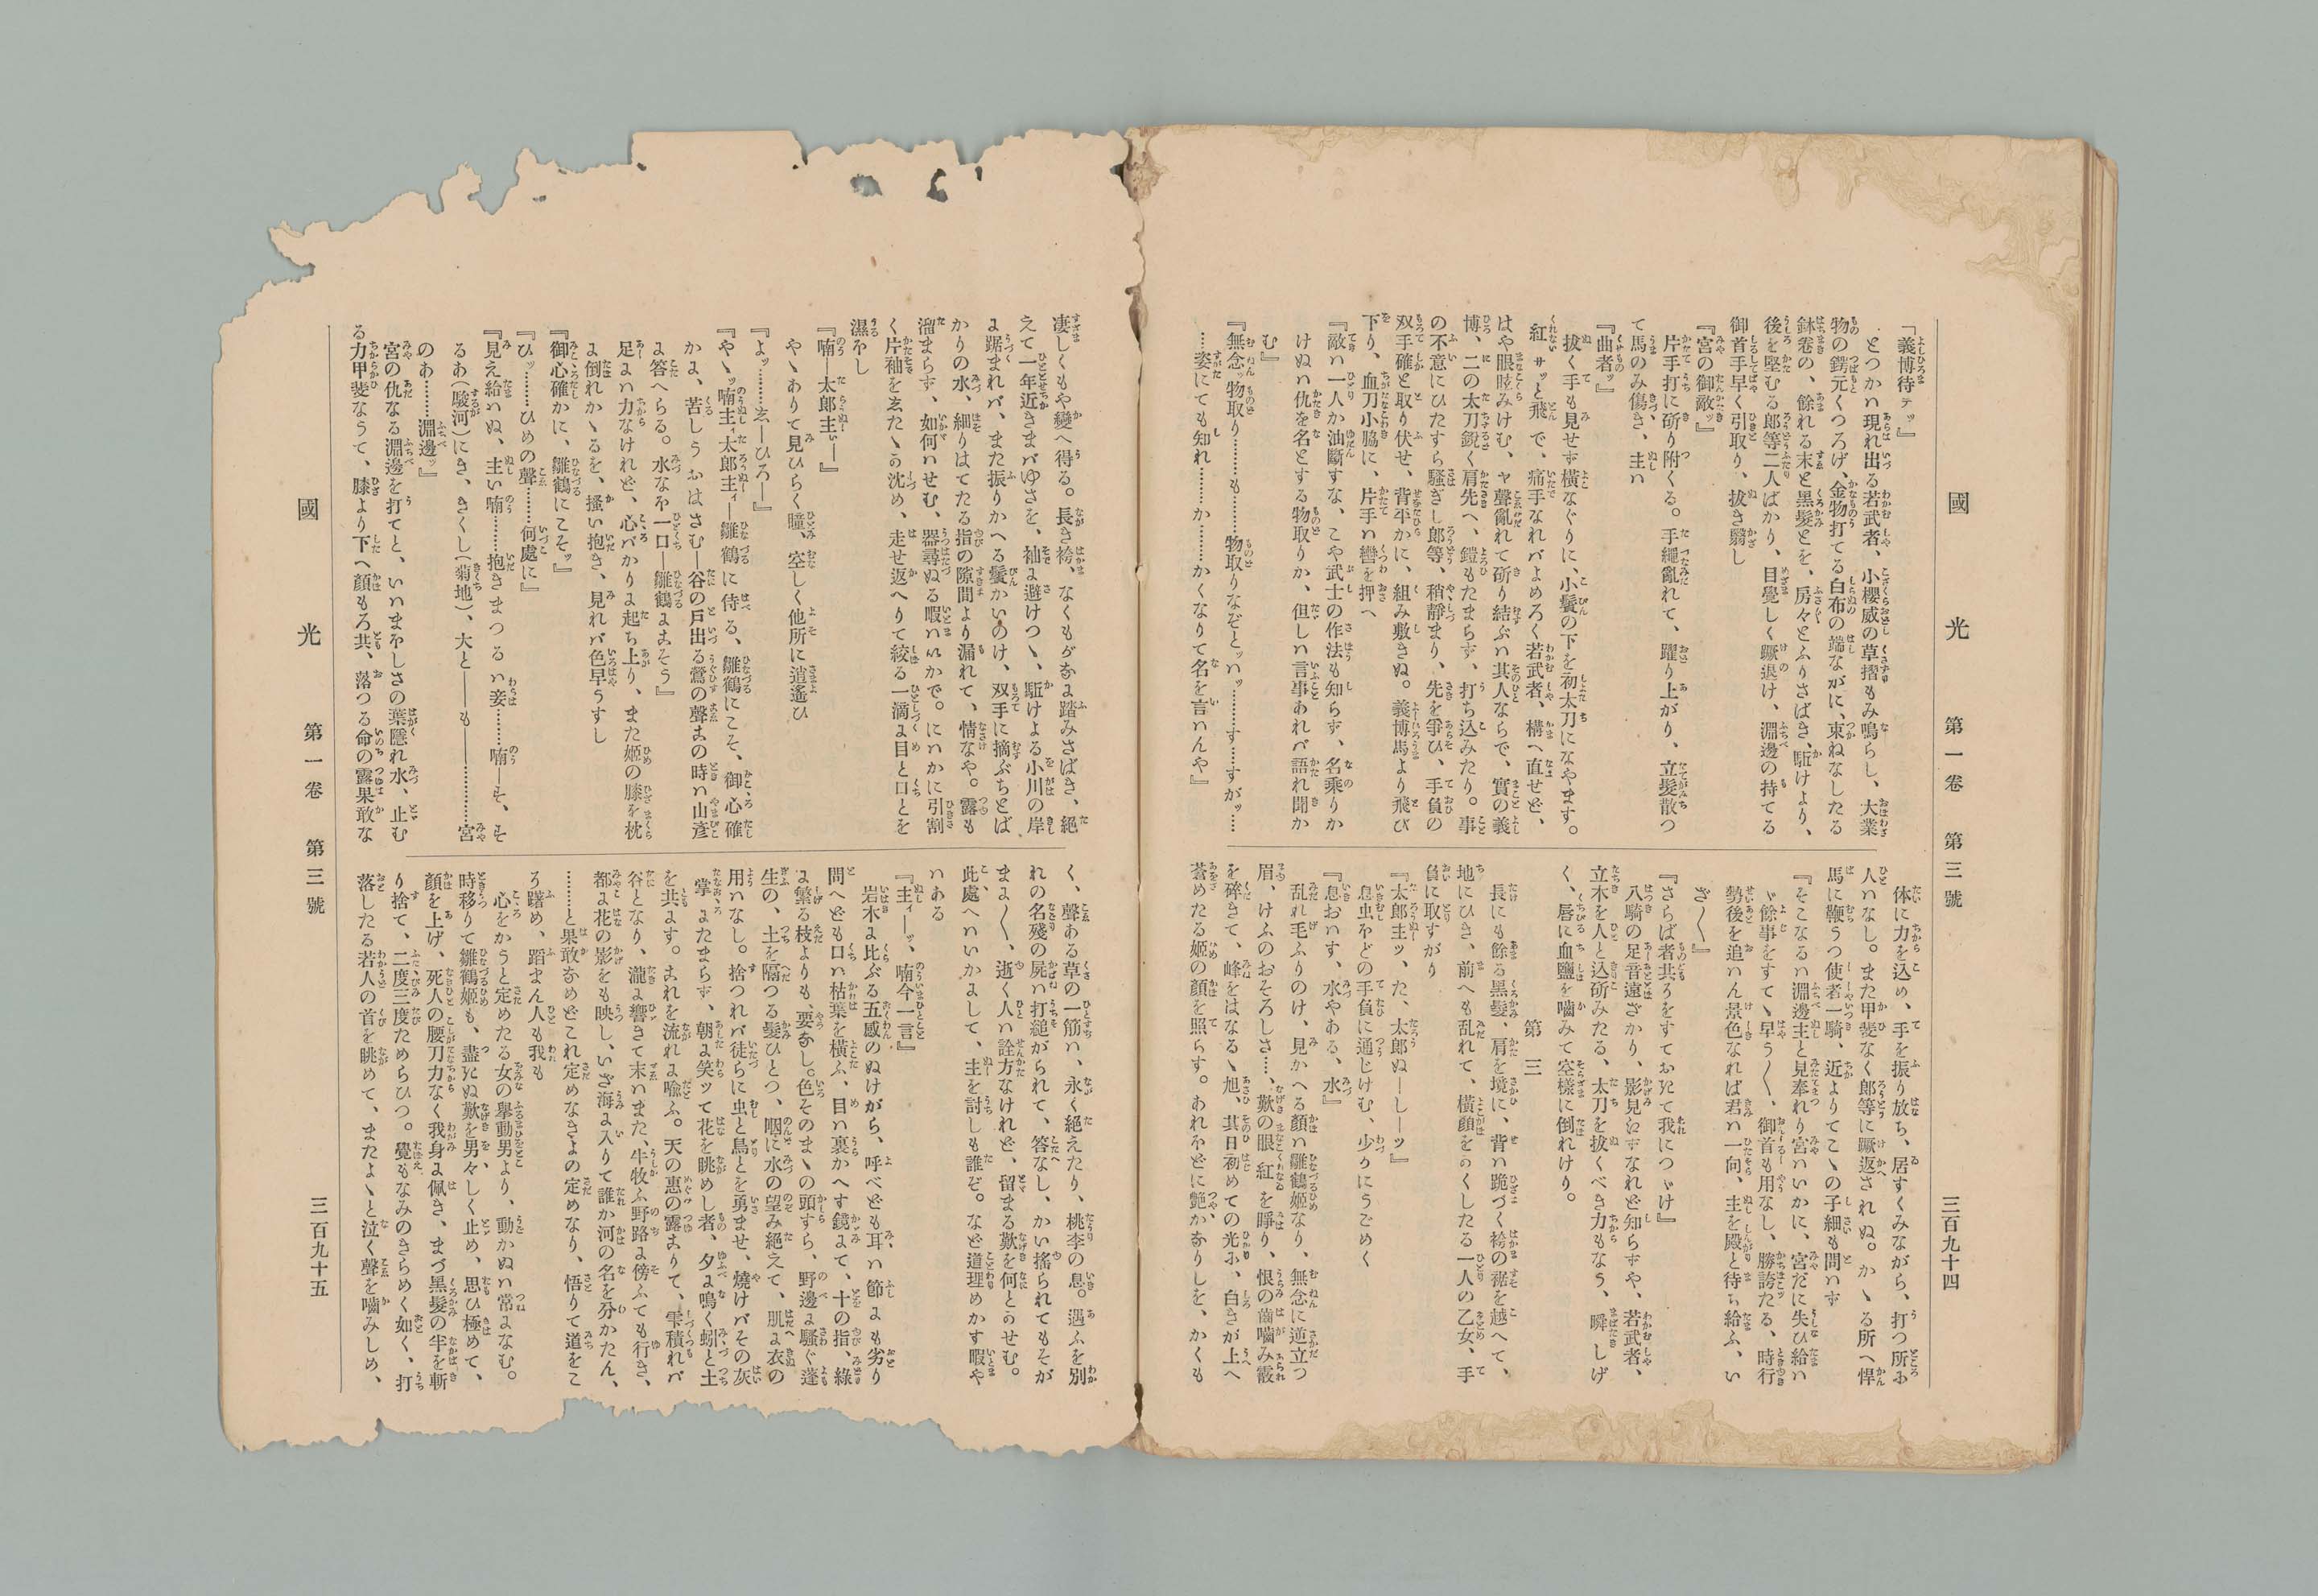 國光 第一卷 第三號 三百九十四
『義博待テッ』
とつかハ現れ出る若武者、小櫻威の草摺もみ鳴らし、大業
物の鍔元くつろげ、金物打てる白布の端ながに、束ねなしたる
鉢卷の、餘れる末と黒髮とを、房々とふりさばき、駈けより、
後を堅むる郎等二人ばかり、目覺しく蹶退け、淵邊の持てる
御首手早く引取り、拔き翳し
『宮の御敵』
片手打に斫り附くる。手繩亂れて、躍り上がり、立髮散つ
て馬のみ傷き、主ハ
『曲者ッ』
拔く手も見せず橫なぐりに、小鬢の下を初太刀になやます。
紅サッと飛で、痛手なれバよめろく若武者、構へ直せど、
はや眼眩みけむ、ャ聲亂れて斫り結ぶハ其人ならで、實の義
博、二の太刀銳く肩先へ、鎧もたまらず、打ち込みたり。事
の不意にひたすら騷ぎし郎等、稍靜まり、先を爭ひ、手負の
双手確と取り伏せ、背平かに、組み敷きぬ。義博馬より飛び
下り、血刀小脇に、片手ハ轡を押へ
『敵ハ一人か油斷すな、こや武士の作法も知らず、名乘りか
けぬハ仇を名とする物取りか、但しハ言事あれバ語れ聞か
む』
『無念ッ物取り………も……物取りなぞとッハッ………す……すがッ…
…姿にても知れ………か……かくなりて名を言ハんや』
体に力を込め、手を振り放ち、居すくみながら、打つ所ふ
人ハなし。また甲斐なく郎等に蹶返されぬ。かゝる所へ悍
馬に鞭うつ使者一騎、近よりてこゝの子細も問ハず
『そこなるハ淵邊主と見奉れり宮ハいかに、宮だに失ひ給ハ
ゞ餘事をすてゝ早う〳〵、御首も用なし、勝誇たる、時行
勢後を追ハん景色なれば君ハ一向、主を殿と待ち給ふ、い
ざ〳〵』
『さらば者共ろをすておだて我につゞけ』
八騎の足音遠ざかり、影見えずなれど知らすや、若武者、
立木を人と込斫みたる、太刀を拔くべき力もなう、瞬しげ
く、唇に血鹽を嚙みて空樣に倒れけり。
第三
長にも餘る黒髮、肩を境に、背ハ跪づく袴の裾を越へて、
地にひき、前へも乱れて、橫顏をのくしたる一人の乙女、手
負に取すがり
『太郎主ッ、た、太郎ぬ―し―ッ』
息虫ほどの手負に通じけむ、少々にうごめく
『息おハす、水やある、水』
乱れ毛ふりのけ、見かへる顏ハ雛鶴姬なり、無念に逆立つ
眉、けふのおそろしさ…、歎の眼紅を睜り、恨の齒嚙み霰
を碎きて、峰をはなるゝ旭、其日初めての光ふ、白きが上へ
蒼めたる姬の顏を照らす。あれほどに艶かありしを、かくも
凄しくもや變へ得る。長き袴、なくもがなよ踏みさばき、絕
えて一年近きまバゆさを、袖よ避けつゝ、駈けよる小川の岸
よ踞まれバ、また振りかへる鬢かいのけ、双手に掬ぶちとば
かりの水、細りはてたる指の隙間より漏れて、情なや。露も
溜まらず、如何ハせむ、器尋ぬる暇ハいかで。にハかに引割
く片袖をゑたゝる沈め、走せ返へりて絞る一滴よ目と口とを
濕ほし
『喃―太郎主―』
やゝありて見ひらく瞳、空しく他所に逍遙ひ
『よッ………ゑ―ひろ―』
『やゝッ喃主ィ太郎主ィ―雛鶴に侍る、雛鶴にこそ、御心確
かよ、苦しうおはさむ―谷の戶出る鶯の聲よの時ハ山彥
よ答へらる。水なや一口―雛鶴よまそう』
足よハ力なけれど、心バかりよ起ち上り、また姬の膝を枕
よ倒れかゝるを、搔い抱き、見れバ色早うすし
『御心確かに、雛鶴にこそッ』
『ひッ………ひめの聲………何處に』
『見え給ハぬ、主い喃………抱きまつるハ妾………喃―そ、そ
るあ(駿河)にき、きくし(菊地)、大と――も――…………宮
のあ………淵邊ッ』
宮の仇なる淵邊を打てと、いハまやしさの葉隱れ水、止む
る力甲斐なうて、膝より下へ顏もろ共、落つる命の露果敢な
く、聲ある草の一筋ハ、永く絕えたり、桃李の息。遇ふを別
れの名殘の屍ハ打縋がられて、答なし、かい搖られてもそが
まよ〳〵、逝く人ハ詮方なけれど、留まる歎を何とのせむ。
此處へハいかよして、主を討しも誰ぞ。など道理めかす暇や
ハある
『主ィ―ッ、喃今一言』
岩木よ比ぶる五感のぬけがら、呼べども耳ハ節よも劣り
問へども口ハ枯葉を橫ふ、目ハ裏かへす鏡よて、十の指、綠
よ繁る枝よりも、要なし。色そのまゝの頭すら、野邊よ騷ぐ蓬
生の、土を隔つる髮ひとつ、咽に水の望み絕えて、肌よ衣の
用ハなし。捨つれバ徒らに虫と鳥とを勇ませ、燒けバその灰
掌よたまらず、朝よ笑ッて花を眺めし者、夕よ鳴く蚓と土
を共よす。よれを流れよ喩ふ。天の惠の露よりて、雫積れバ
谷となり、瀧よ響きて末ハまた、牛牧ふ野路よ傍ふても行き、
都よ花の影をも映し、いざ海よ入りて誰か河の名を分かたん、
………と果敢なめどこれ定めなきよの定めなり、悟りて道をこ
ろ躇め、蹈よん人も我も
心をかうと定めたる女の擧動男より、動かぬハ常よなむ。
時移りて雛鶴姬も、盡だぬ歎を男々しく止め、思ひ極めて、
顏を上げ、死人の腰刀力なく我身よ佩き、まづ黒髮の半を斬
り捨て、二度三度ためらひつ。覺もなみのきらめく如く、打
落したる若人の首を眺めて、またよゝと泣く聲を嚙みしめ、
國光 第一卷 第三號 三百九十五